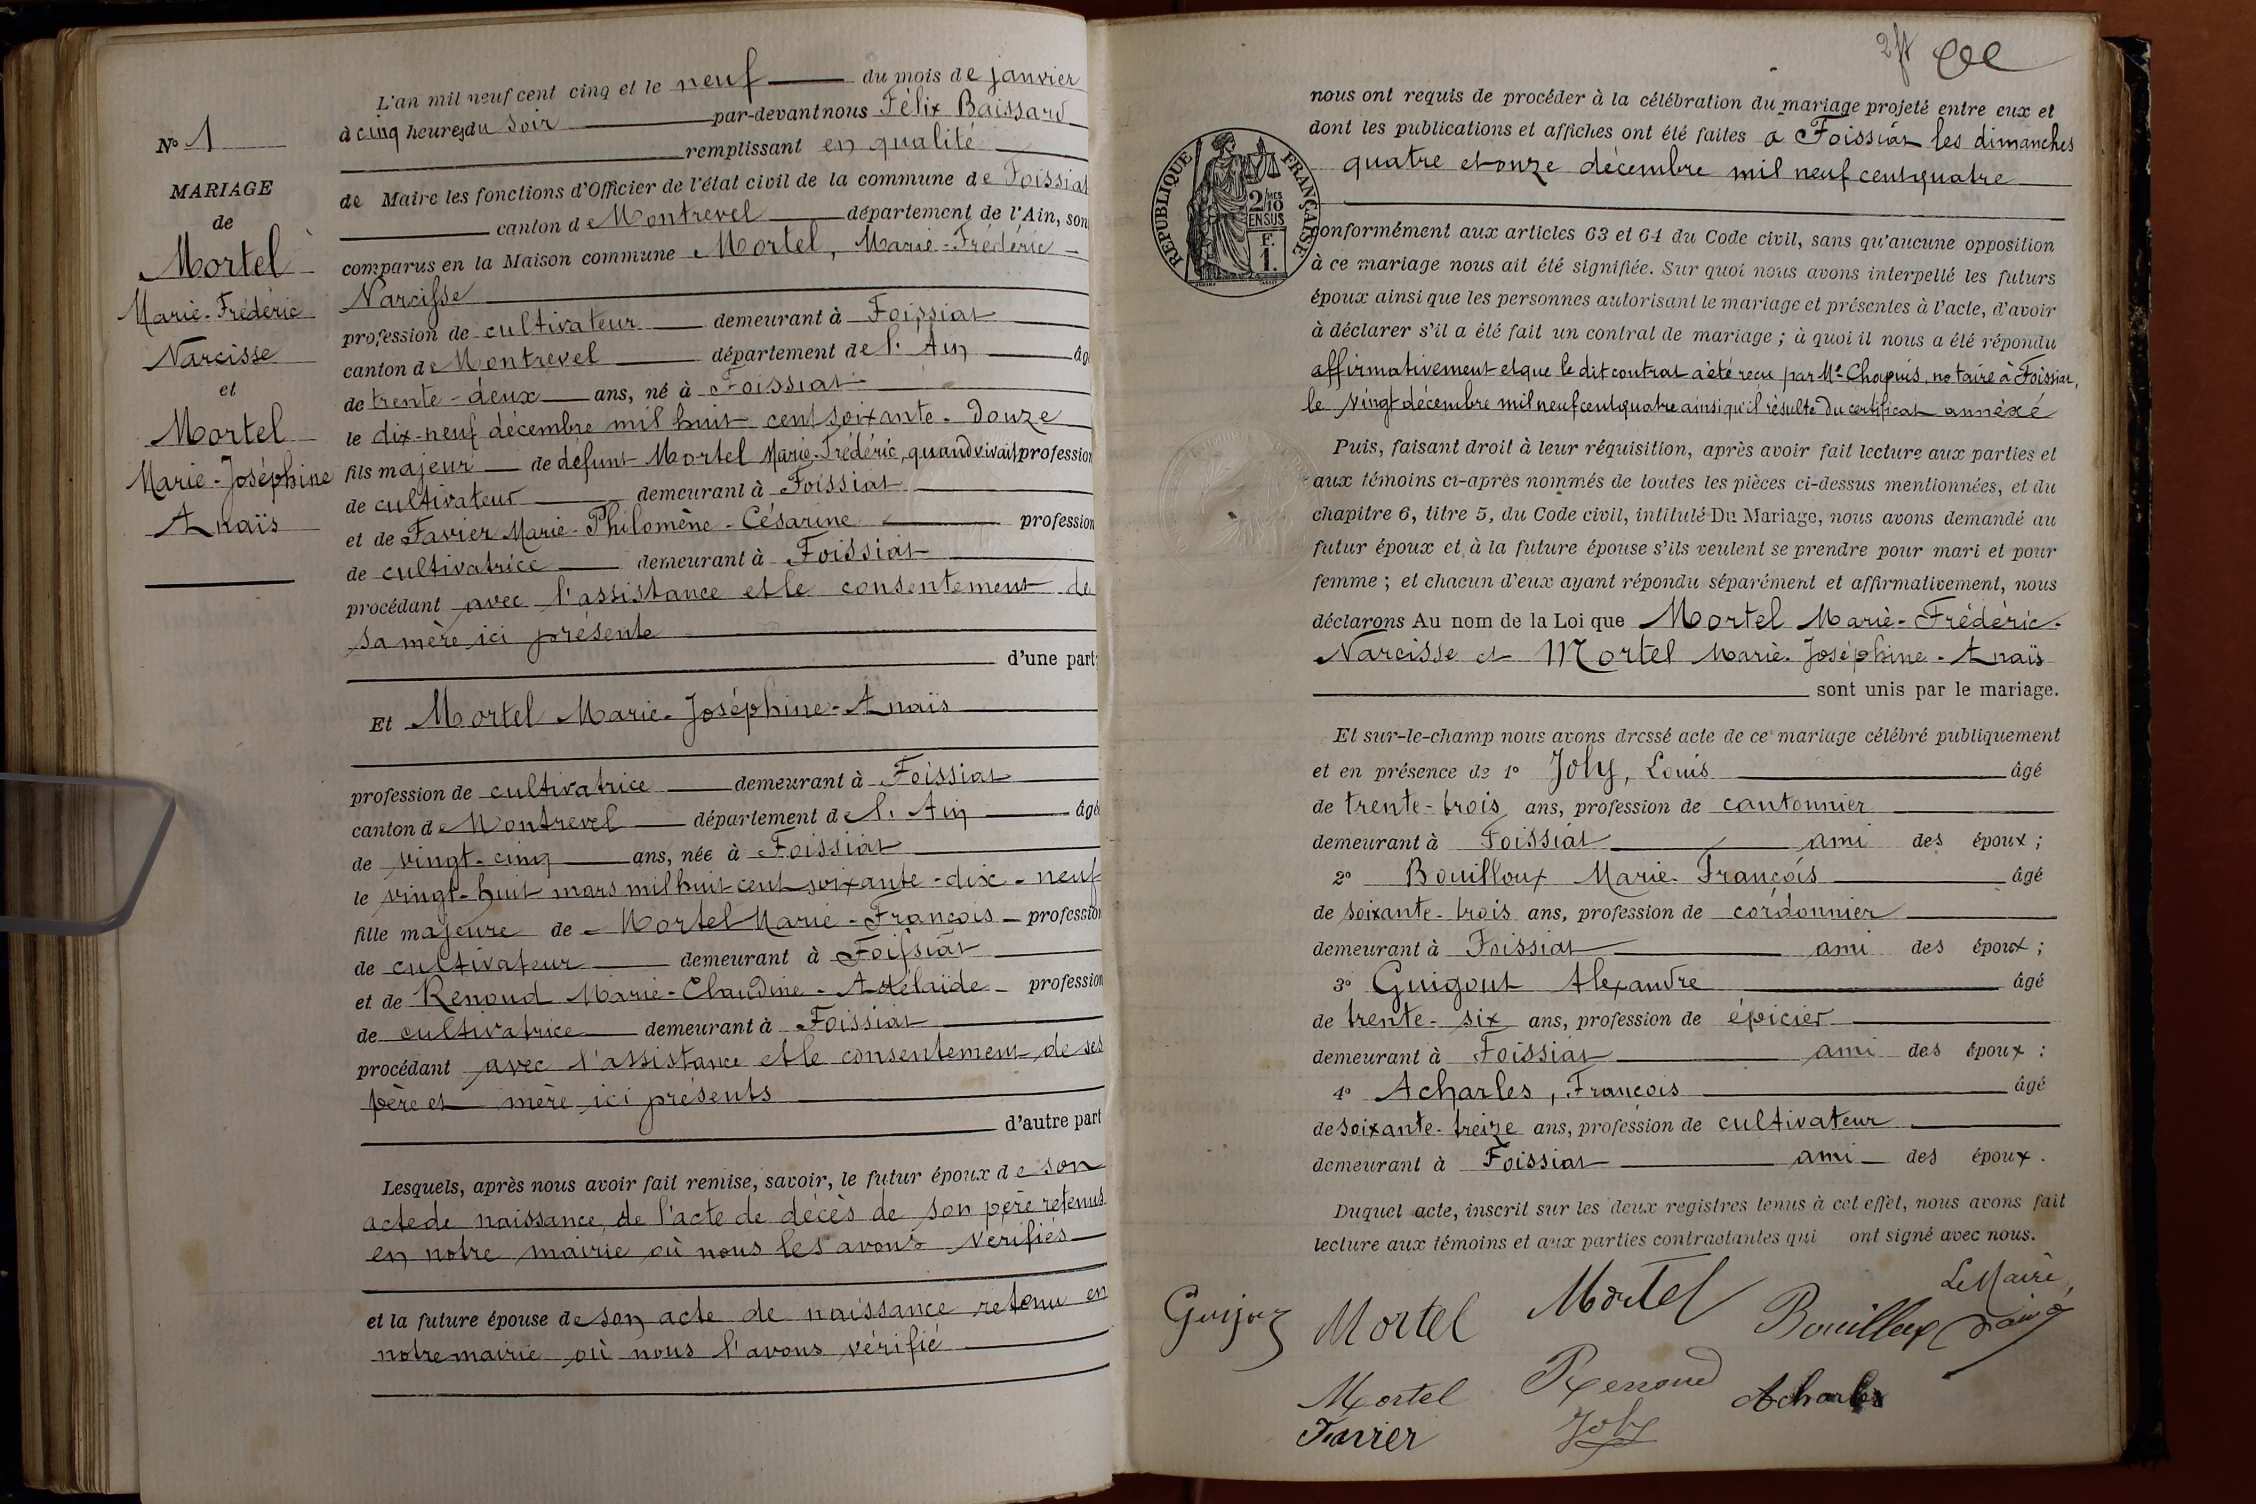 N° 1
MARIAGE
de
Mortel
Marie-Frédéric
Narcisse
et
Mortel
Marie-Joséphine
Anaïs
L'an mil neuf cent cinq et le neuf du mois de janvier
à cinq heures du soir par-devant nous Félix Baissard
remplissant en qualité
de Maire les fonctions d'Officier de l'état civil de la commune de Foissiat
canton de Montrevel département de l'Ain, son
comparus en la Maison commune Mortel, Marie-Frédéric-
Narcisse
profession de cultivateur demeurant à Foissiat
canton de Montrevel département de l'Ain âgé
de trente-deux ans, né à Foissiat
le dix-neuf décembre mil huit cent soixante-douze
fils majeur de défunt Mortel Marie-Frédéric, quand vivait profession
de cultivateur demeurant à Foissiat
et de Favier Marie-Philomène-Césarine profession
de cultivatrice demeurant à Foissiat
procédant avec l'assistance et le consentement de
sa mère ici présente
d'une part;
Et Mortel Marie-Joséphine-Anaïs
profession de cultivatrice demeurant à Foissiat
canton de Montrevel département de l'Ain âgé
de vingt-cinq ans, née à Foissiat
le vingt-huit mars mil huit cent soixante-dix-neuf
fille majeure de Mortel Marie-François profession
de cultivateur demeurant à Foissiat
et de Renoud Marie-Claudine-Adélaïde profession
de cultivatrice demeurant à Foissiat
procédant avec l'assistance et le consentement de ses
père et mère ici présents
d'autre part
Lesquels, après nous avoir fait remise, savoir, le futur époux de son
acte de naissance, de l'acte de décès de son père retenus
en notre mairie où nous les avons vérifiés
et la future épouse de son acte de naissance retenu en
notre mairie où nous l'avons vérifié
nous ont requis de procéder à la célébration du mariage projeté entre eux et
dont les publications et affiches ont été faites à Foissiat les dimanches
quatre et onze décembre mil neuf cent quatre
RÉPUBLIQUE FRANÇAISE
2/10 MES
EN SUS
F.
1.
conformément aux articles 63 et 64 du Code civil, sans qu'aucune opposition
à ce mariage nous ait été signifiée. Sur quoi nous avons interpellé les futurs
époux ainsi que les personnes autorisant le mariage et présentes à l'acte, d'avoir
à déclarer s'il a été fait un contrat de mariage ; à quoi il nous a été répondu
affirmativement et que le dit contrat a été reçu par Me Chapuis, notaire à Foissiat,
le vingt décembre mil neuf cent quatre ainsi qu'il résulte du certificat annexé
Puis, faisant droit à leur réquisition, après avoir fait lecture aux parties et
aux témoins ci-après nommés de toutes les pièces ci-dessus mentionnées, et du
chapitre 6, titre 5, du Code civil, intitulé Du Mariage, nous avons demandé au
futur époux et à la future épouse s'ils veulent se prendre pour mari et pour
femme ; et chacun d'eux ayant répondu séparément et affirmativement, nous
déclarons Au nom de la Loi que Mortel Marie-Frédéric-
Narcisse et Mortel Marie-Joséphine-Anaïs
sont unis par le mariage.
Et sur-le-champ nous avons dressé acte de ce mariage célébré publiquement
et en présence de 1° Joly, Louis âgé
de trente-trois ans, profession de cantonnier
demeurant à Foissiat ami des époux ;
2° Bouilloux Marie-François âgé
de soixante-trois ans, profession de cordonnier
demeurant à Foissiat ami des époux ;
3° Guigout Alexandre âgé
de trente-six ans, profession de épicier
demeurant à Foissiat ami des époux ;
4° Acharles, François âgé
de soixante-treize ans, profession de cultivateur
demeurant à Foissiat ami des époux.
Duquel acte, inscrit sur les deux registres tenus à cet effet, nous avons fait
lecture aux témoins et aux parties contractantes qui ont signé avec nous.
Le Maire,
Mortel Mortel Bouilloux
Mortel Renoud Acharles
Favier Joly